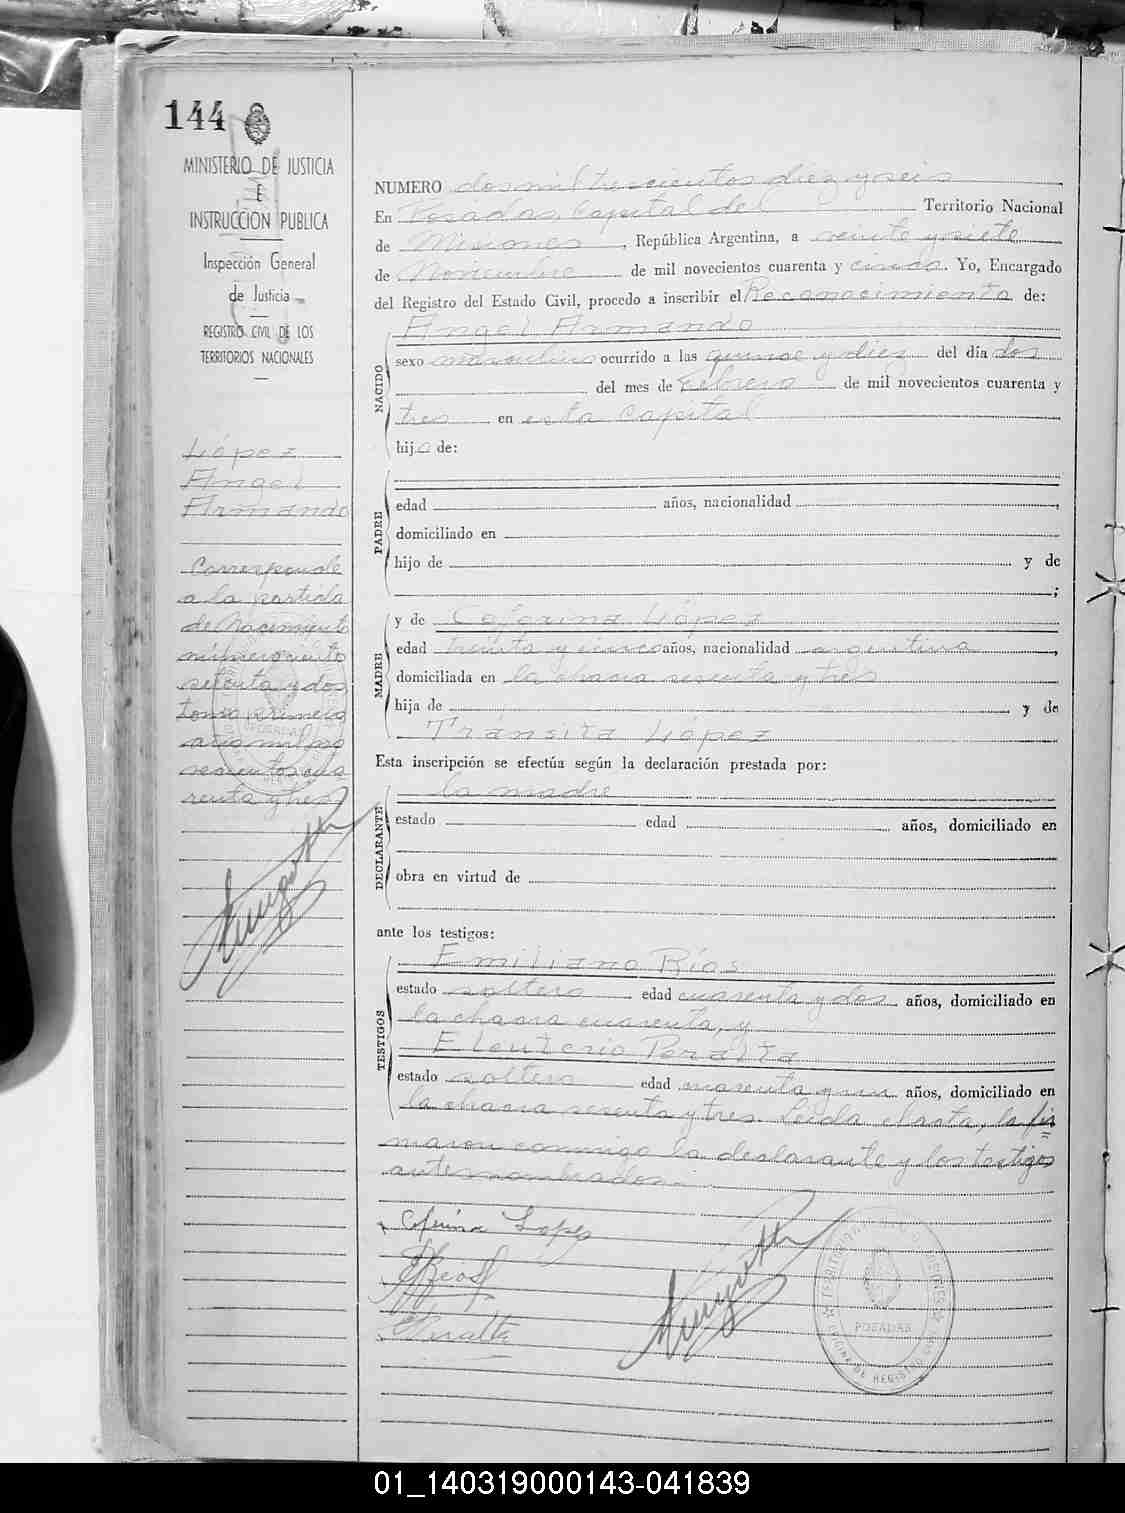 144
MINISTERIO DE JUSTICIA
E
INSTRUCCION PUBLICA
Inspección General
de Justicia
REGISTRO CIVIL DE LOS
TERRITORIOS NACIONALES
López
Angel
Armando
Corresponde
a la partida
de Nacimiento
mil novecientos
setenta y dos
tomo primero
año mil no
vecientos cua
renta y tres
NUMERO dos mil trescientos diez y seis
En Posadas, Capital del Territorio Nacional
de Misiones, República Argentina, a veinte y siete
de Noviembre de mil novecientos cuarenta y cinco. Yo, Encargado
del Registro del Estado Civil, procedo a inscribir el Reconocimiento de:
NACIDO
Angel Armando
sexo masculino ocurrido a las quince y diez del día dos
del mes de Febrero de mil novecientos cuarenta y
tres en esta Capital
hijo de:
PADRE
edad años, nacionalidad
domiciliado en
hijo de y de
;
MADRE
y de Ceferina López
edad treinta y cinco años, nacionalidad argentina,
domiciliada en la chacra sesenta y tres
hija de y de
Tránsita López
Esta inscripción se efectúa según la declaración prestada por:
DECLARANTE
la madre
estado edad años, domiciliado en
obra en virtud de
ante los testigos:
TESTIGOS
Emiliano Ríos
estado soltero edad cuarenta y dos años, domiciliado en
la chacra cuarenta, y
Eleuterio Peralta
estado soltero edad cuarenta y un años, domiciliado en
la chacra sesenta y tres. Leida el acta, la fir
maron conmigo la declarante y los testigos
antes nombrados.
Ceferina Lopez
ERios
EPeralta
POSADAS
01_140319000143-041839